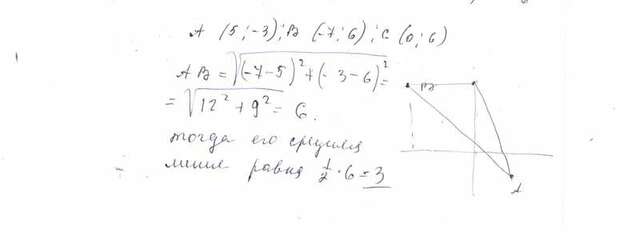 A (5; -3); B (-7; 6); C (0; 6)
AB = √(-7-5)² + (-3-6)² =
= √12² + 9² = 6.
тогда его средняя
линия равна 1/2 · 6 = 3
B
A